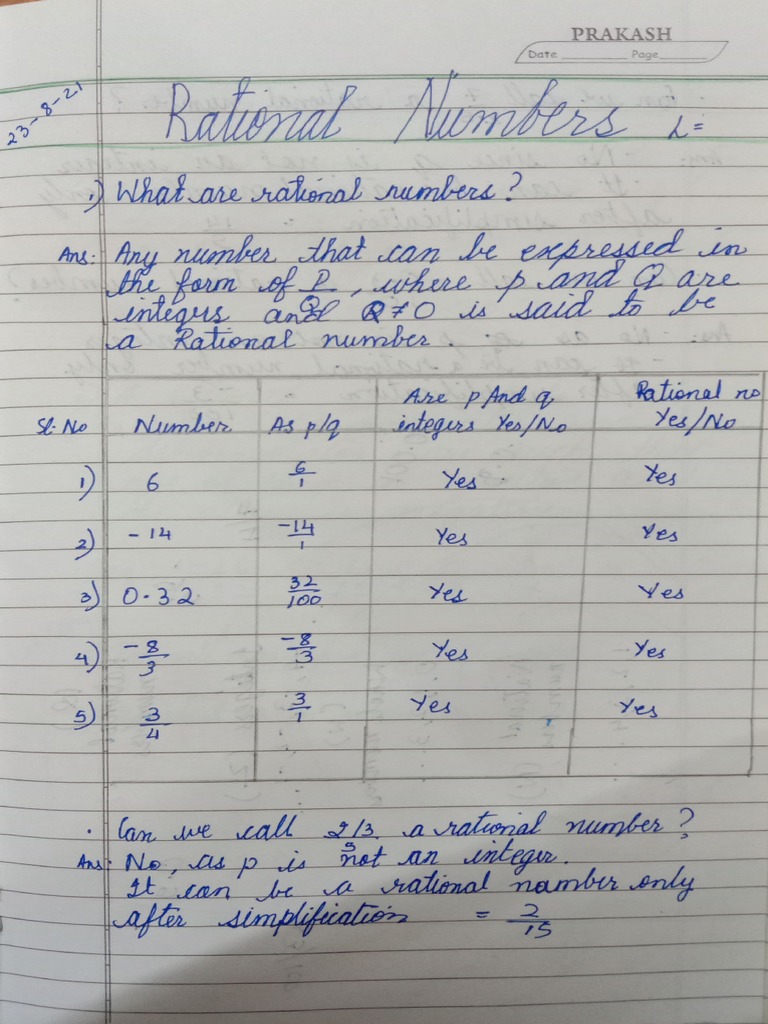 PRAKASH
Date Page
23-8-21
Rational Numbers L=
1.) What are rational numbers?
Ans: Any number that can be expressed in
the form of P/Q, where p and Q are
integers and Q≠0 is said to be
a Rational number.
Sl. No | Number | As p/q | Are p And q integers Yes/No | Rational no Yes/No
1) 6 6/1 Yes Yes
2) -14 -14/1 Yes Yes
3) 0.32 32/100 Yes Yes
4) -8/3 -8/3 Yes Yes
5) 3/4 3/1 Yes Yes
. Can we call 2/3/5 a rational number?
Ans: No, as p is not an integer.
It can be a rational number only
after simplification = 2/15